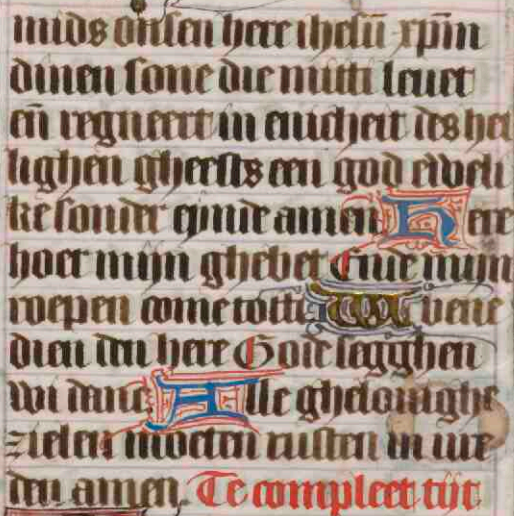 mids onsen here ihesū xp̄m
dinen sone die mitti leuet
en̄ regneert in enicheit des hei
lighen gheests een god eweli
ke sonder eynde amen Here
hoer mijn ghebet Ende mijn
roepen come totti We bene
dien den here Gode segghen
wi danc Alle ghelouighe
zielen moeten rusten in vre
den amen. Te compleet tijt